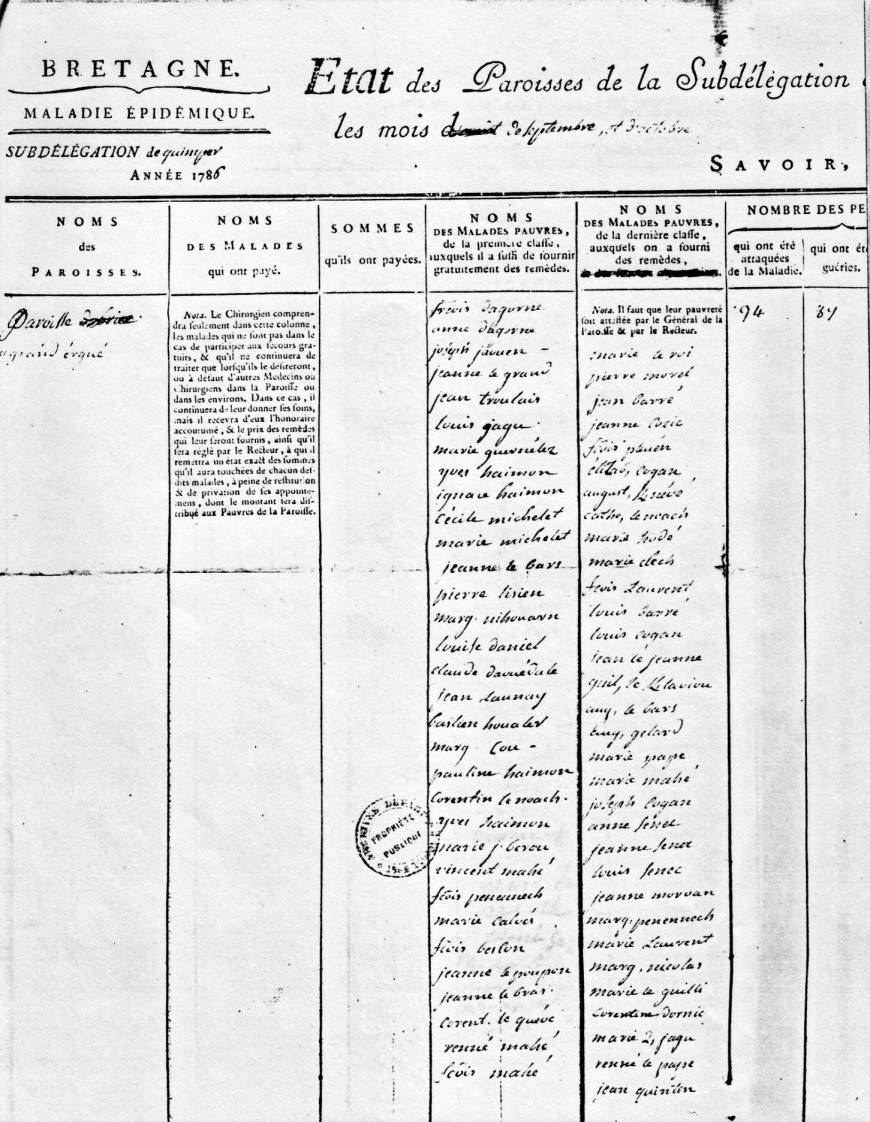 BRETAGNE.
MALADIE ÉPIDÉMIQUE.
SUBDÉLÉGATION de quimper
ANNÉE 1786
Etat des Paroisses de la Subdélégation
les mois de Septembre, et d'octobre
SAVOIR,
NOMS
des
PAROISSES.
NOMS
DES MALADES
qui ont payé.
SOMMES
qu'ils ont payées.
NOMS
DES MALADES PAUVRES,
de la premiere classe,
auxquels il a suffi de fournir
gratuitement des remèdes.
NOMS
DES MALADES PAUVRES,
de la derniére classe,
auxquels on a fourni
des remèdes,
NOMBRE DES PE
qui ont été
attaquées
de la Maladie.
qui ont ét
guéries.
Paroisse
grand érgué
Nota. Le Chirurgien compren-
dra seulement dans cette colonne,
les malades qui ne sont pas dans le
cas de participer aux secours gra-
tuits, & qu'il ne continuera de
traiter que lorsqu'ils le desireront,
ou à défaut d'autres Medecins ou
Chirurgiens dans la Paroisse ou
dans les environs. Dans ce cas, il
continuera de leur donner ses soins,
mais il recevra d'eux l'honoraire
accoutumé, & le prix des remèdes
qui leur seront fournis, ainsi qu'il
sera réglé par le Recteur, à qui il
remettra un état exact des sommes
qu'il aura touchées de chacun des-
dits malades, à peine de restitution
& de privation de ses appointe-
mens, dont le montant sera dis-
tribué aux Pauvres de la Paroisse.
frčois dagorne
anne dagorne
joseph jaouen -
jeanne le grand
jean troulais
louis jaqu
marie querneles
yves haimon
ignace haimon
cécile michelet
marie michelet
jeanne le bars
pierre lisien
marg. nihouarn
louise daniel
claude
jean Launay
bastien houaler
marg. Cou -
pauline haimon
Corentin le noach.
yves haimon
marie j. berou
vincent mahé
fčois penennech
marie calvés
fčois beslon
jeanne le poupon
jeanne le bras.
Corent. le quéve
renné mahé
fčois mahé
Nota. Il faut que leur pauvreté
soit attestée par le Général de la
Paroisse & par le Recteur.
marie le roi
pierre morel
jean barré
jeanne cozic
fčois
cogan
august,
cathe, le noach
marie hodé
marie clech
fčois Laurent
louis barré
louis cogan
jean le jeanne
guil, le
aug, le bars
gelard
marie pape
marie mahé
joseph Cogan
anne senec
jeanne senec
louis senec
jeanne morvan
marg, penennech
marie Laurent
marg, nicolas
marie le quilli
Corentine dornic
marie jaqu
renné le pape
jean quintin
94
87
PROPRIÉTÉ
PUBLIQUE